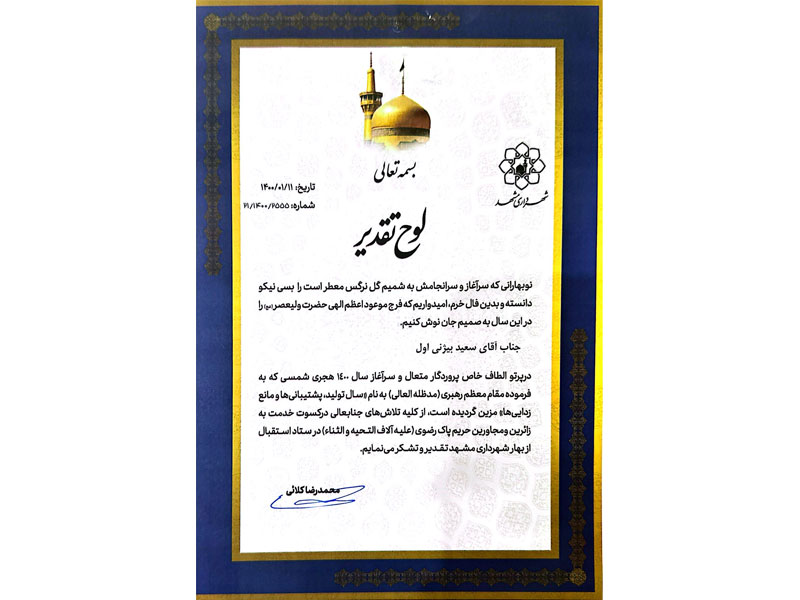 بسمه تعالی
شهرداری مشهد
تاریخ: ۱۴۰۰/۰۱/۱۱
شماره: ۲۱/۱۴۰۰/۲۵۵۵
لوح تقدیر
نوبهارانی که سرآغاز و سرانجامش به شمیم گل نرگس معطر است را بسی نیکو
دانسته و بدین فال خرم، امیدواریم که فرج موعود اعظم الهی حضرت ولیعصر(عج) را
در این سال به صمیم جان نوش کنیم.
جناب آقای سعید بیژنی اول
درپرتو الطاف خاص پروردگار متعال و سرآغاز سال ۱۴۰۰ هجری شمسی که به
فرموده مقام معظم رهبری (مدظله العالی) به نام «سال تولید، پشتیبانی‌ها و مانع
زدایی‌ها» مزین گردیده است، از کلیه تلاش‌های جنابعالی درکسوت خدمت به
زائرین ومجاورین حریم پاک رضوی (علیه آلاف التحیه و الثناء) در ستاد استقبال
از بهار شهرداری مشهد تقدیر و تشکر می‌نمایم.
محمدرضا کلائی